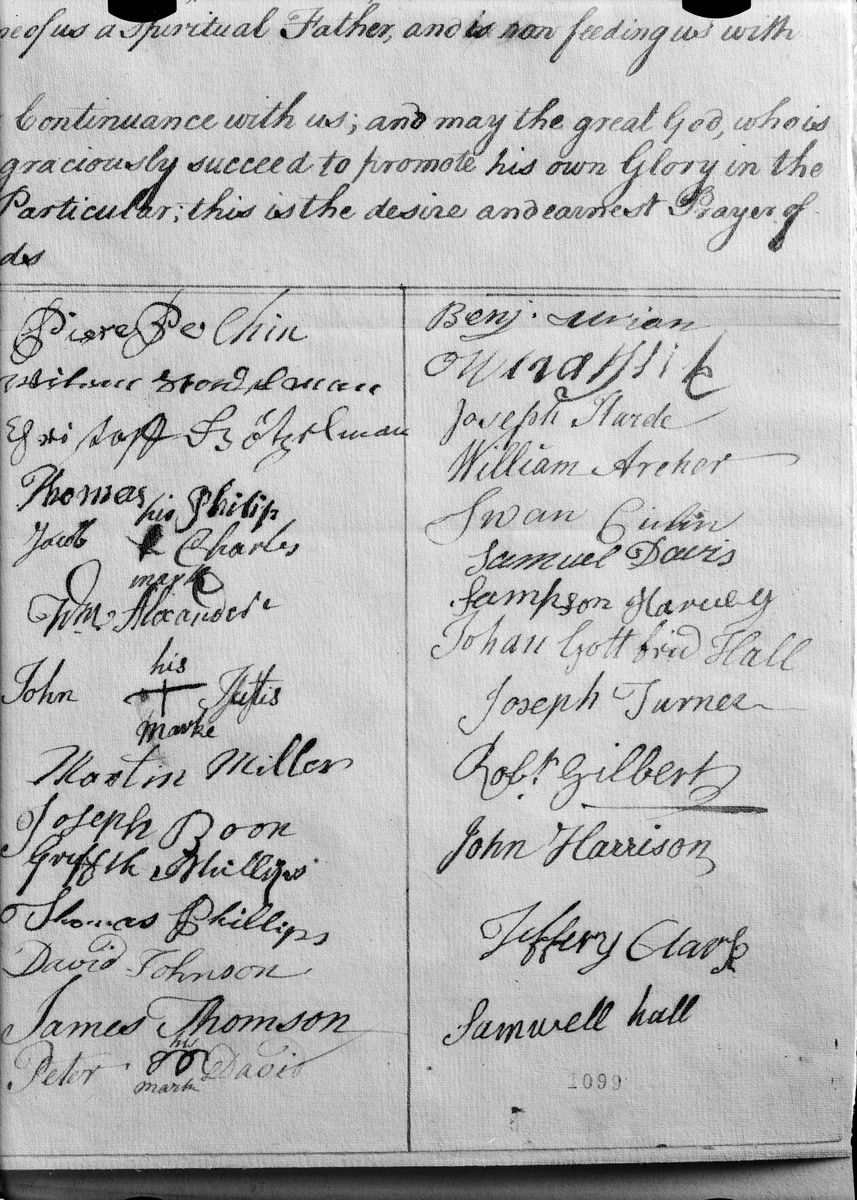 of us a Spiritual Father, and is now feeding us with
Continuance with us; and may the great God, who is
graciously succeed to promote his own Glory in the
Particular; this is the desire and earnest Prayer of
ds
Piere Pechin
Thomas Philip
his
Jacob Charles
mark
Wm Alexander
his
John + Justis
marke
Martin Miller
Joseph Boon
Griffith Phillips
Thomas Phillips
David Johnson
James Thomson
his
Peter Davis
mark
Benj. Urian
Joseph Harde
William Archer
Swan Culin
Samuel Davis
Sampson Harvey
Johan Gottfrid Hall
Joseph Turner
Robt. Gilbert
John Harrison
Jeffery Clark
Samwell hall
1099